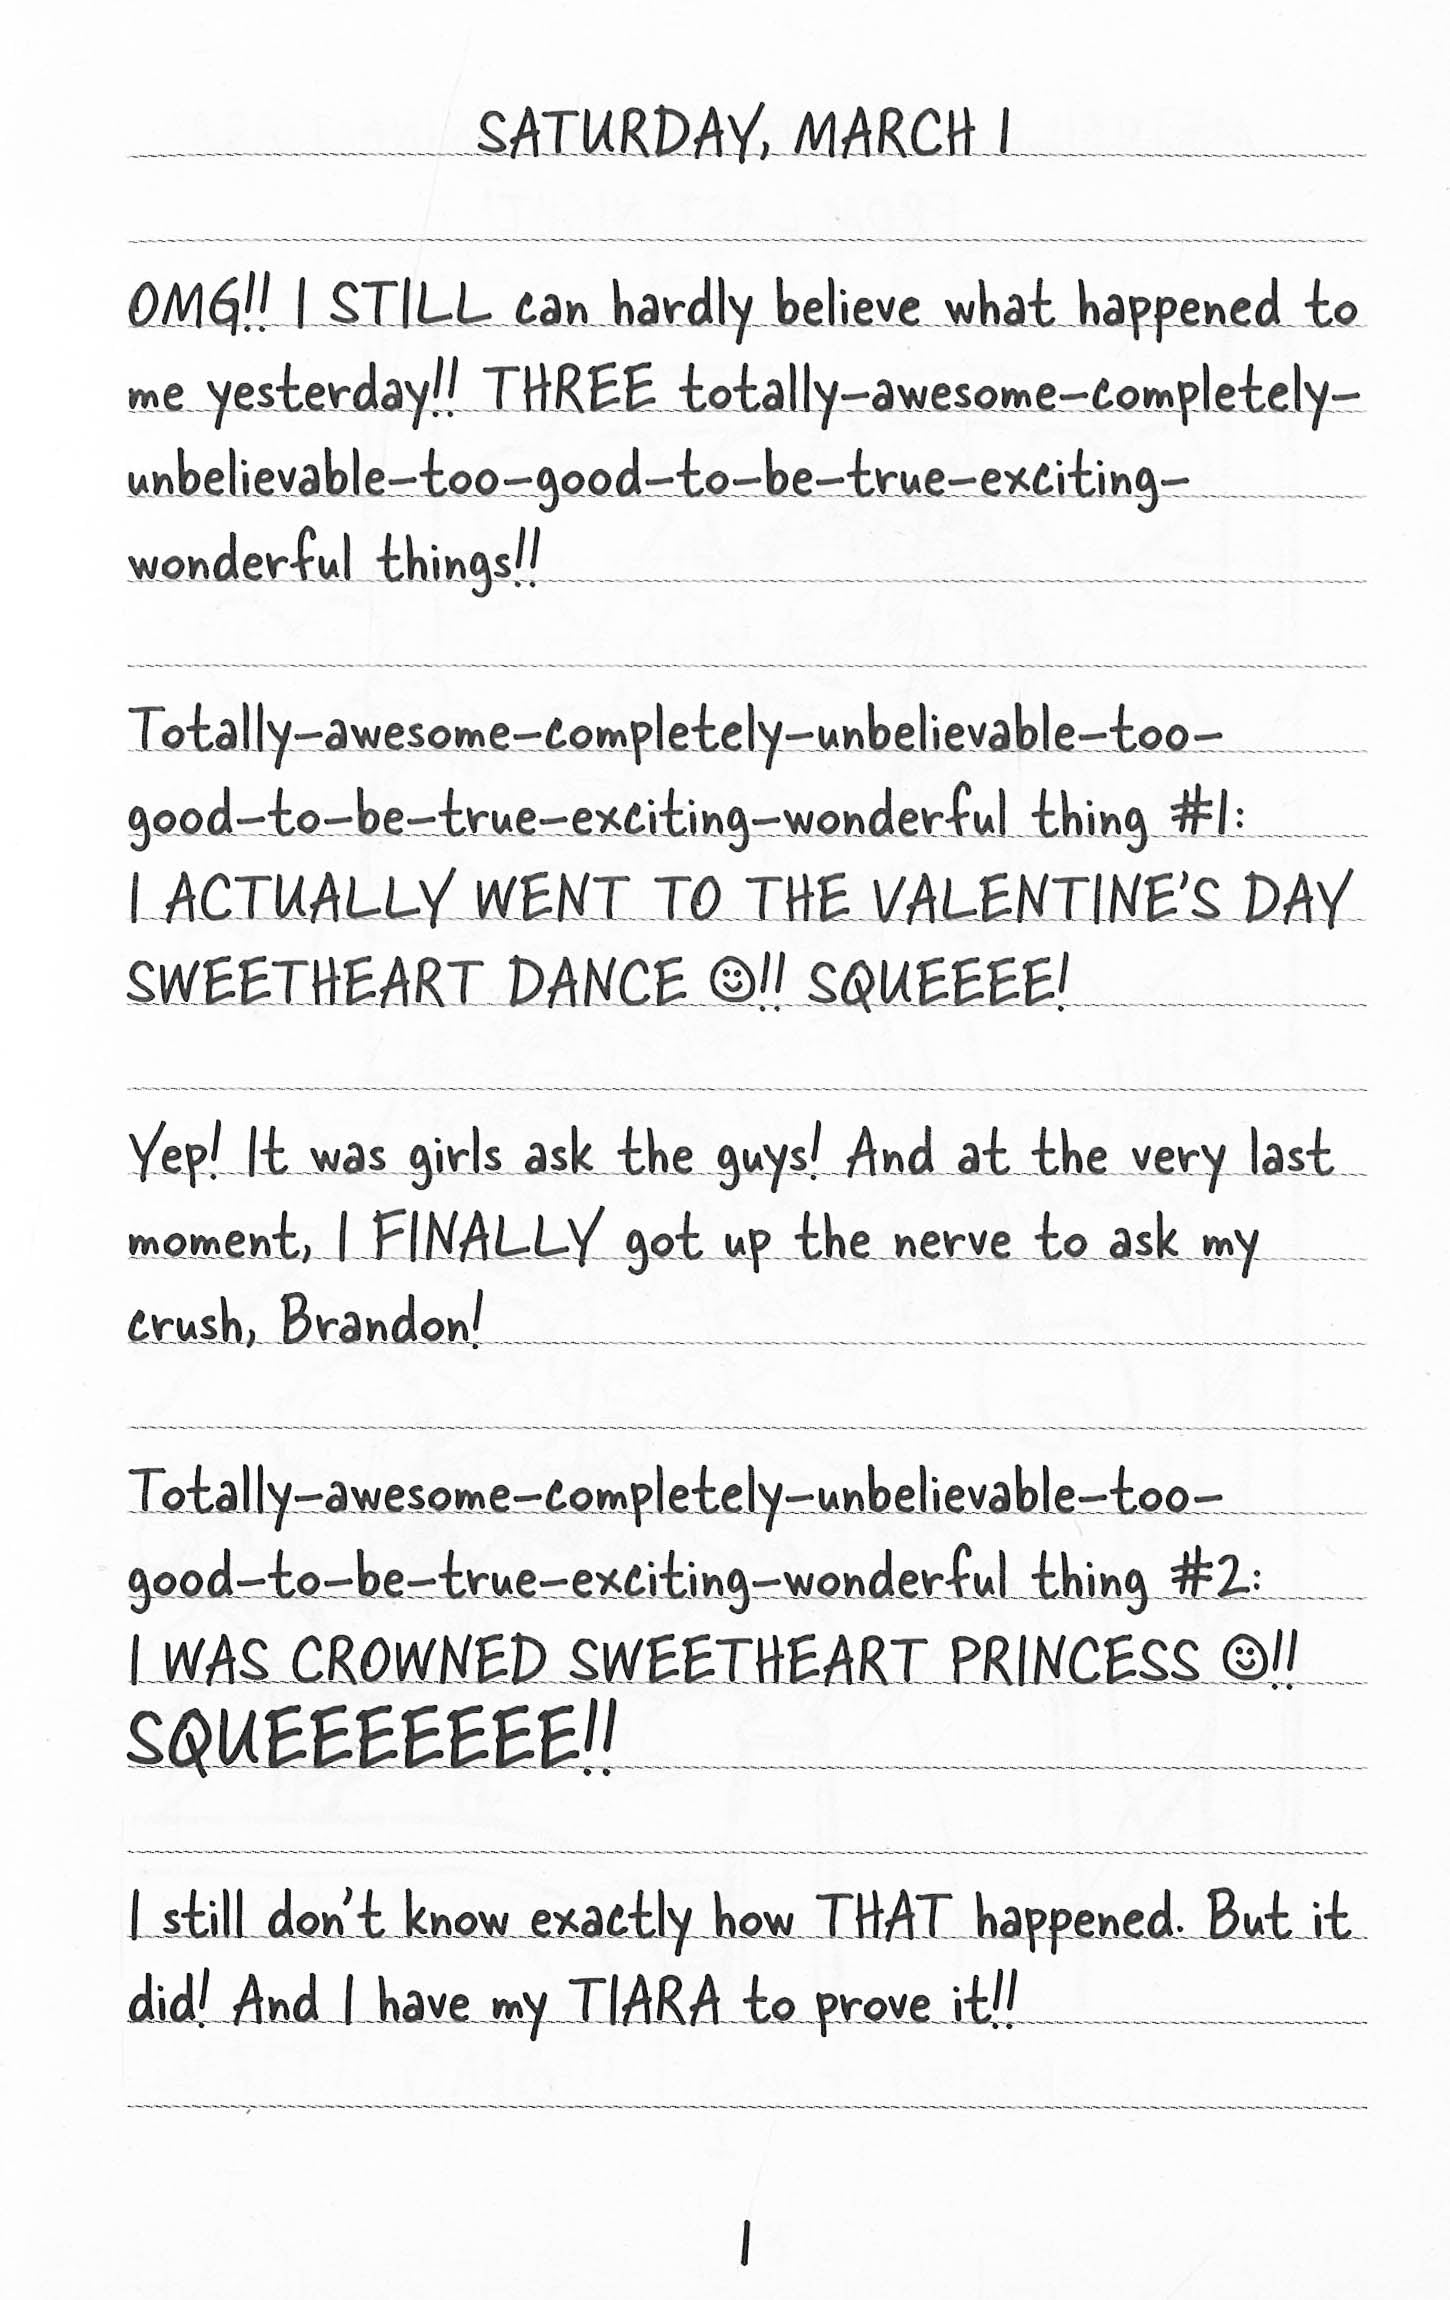 SATURDAY, MARCH 1
OMG!! I STILL can hardly believe what happened to
me yesterday!! THREE totally-awesome-completely-
unbelievable-too-good-to-be-true-exciting-
wonderful things!!
Totally-awesome-completely-unbelievable-too-
good-to-be-true-exciting-wonderful thing #1:
I ACTUALLY WENT TO THE VALENTINE'S DAY
SWEETHEART DANCE ☺!! SQUEEEE!
Yep! It was girls ask the guys! And at the very last
moment, I FINALLY got up the nerve to ask my
crush, Brandon!
Totally-awesome-completely-unbelievable-too-
good-to-be-true-exciting-wonderful thing #2:
I WAS CROWNED SWEETHEART PRINCESS ☺!!
SQUEEEEEEE!!
I still don't know exactly how THAT happened. But it
did! And I have my TIARA to prove it!!
1